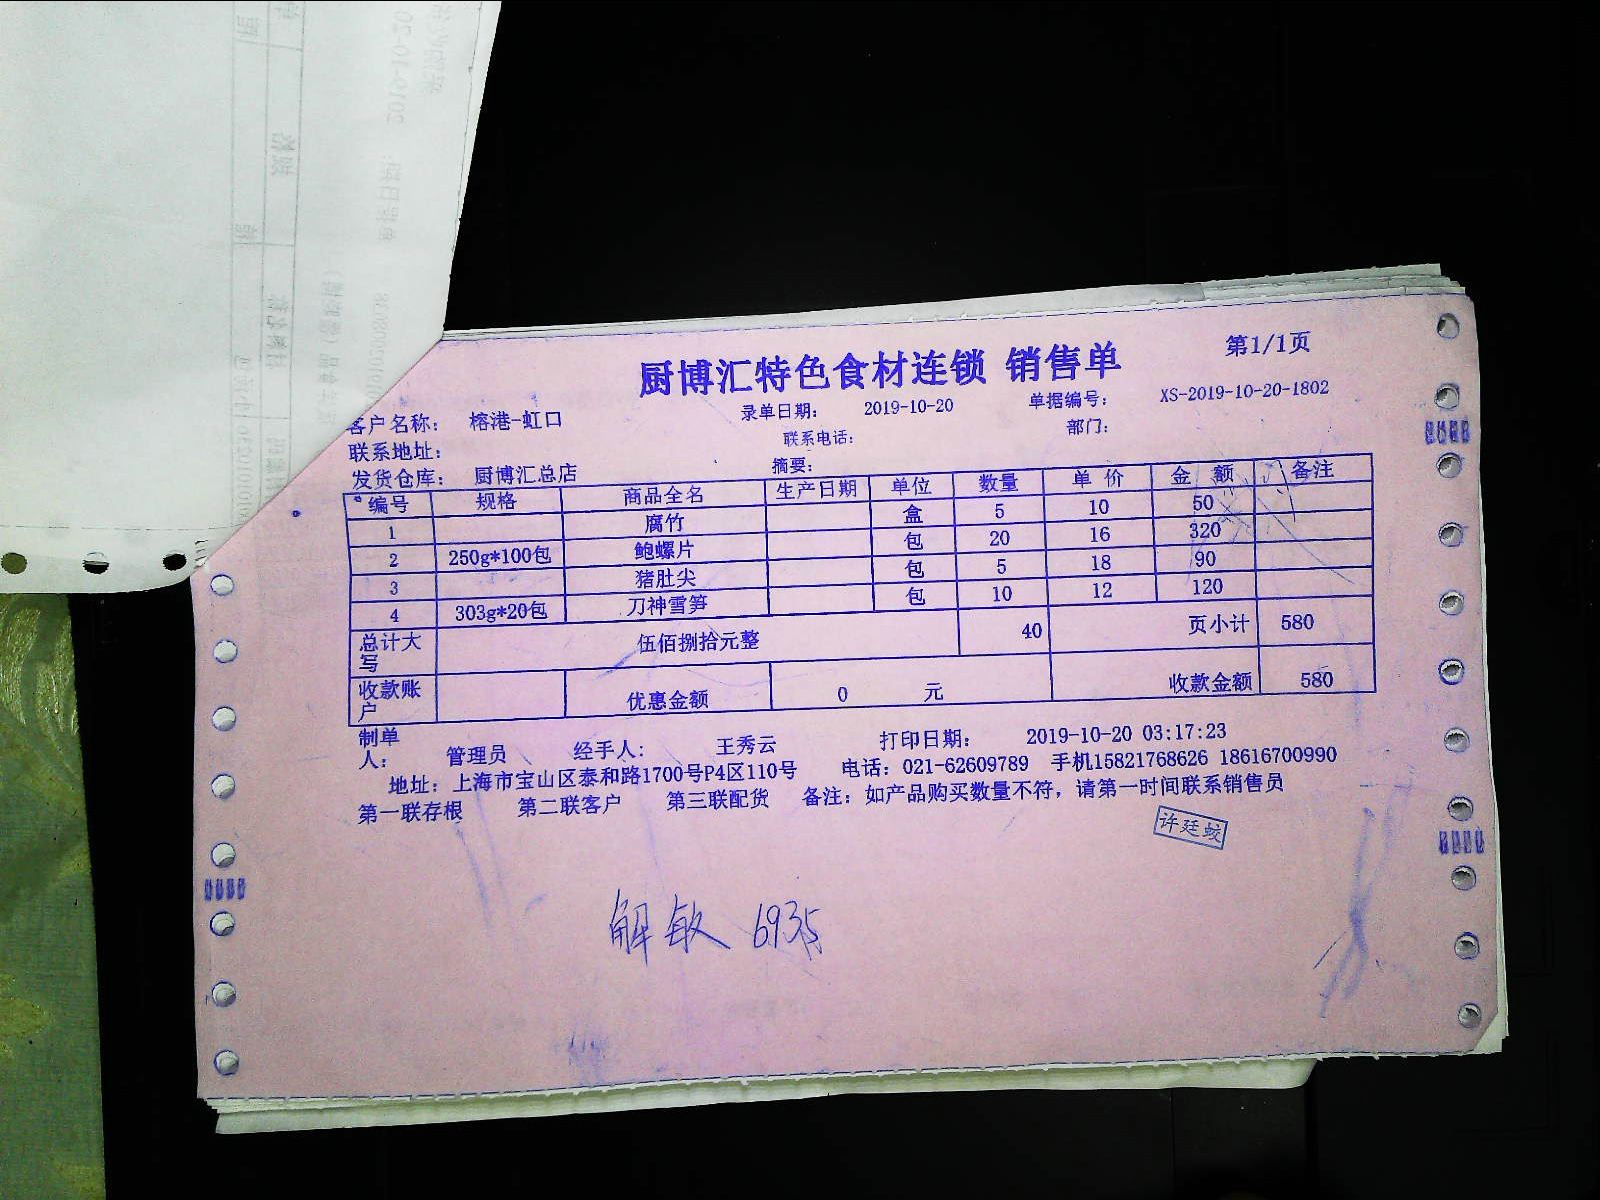 厨博汇特色食材连锁 销售单
第1/1页
客户名称： 榕港-虹口 录单日期： 2019-10-20 单据编号： XS-2019-10-20-1802
联系地址： 联系电话： 部门：
发货仓库： 厨博汇总店 摘要：
编号 规格 商品全名 生产日期 单位 数量 单价 金额 备注
1 腐竹 盒 5 10 50
2 250g*100包 鲍螺片 包 20 16 320
3 猪肚尖 包 5 18 90
4 303g*20包 刀神雪笋 包 10 12 120
总计大写 伍佰捌拾元整 40 页小计 580
收款账户 优惠金额 0 元 收款金额 580
制单人： 管理员 经手人： 王秀云 打印日期： 2019-10-20 03:17:23
地址：上海市宝山区泰和路1700号P4区110号 电话：021-62609789 手机15821768626 18616700990
第一联存根 第二联客户 第三联配货 备注：如产品购买数量不符，请第一时间联系销售员
许廷蛟
解敏 6935